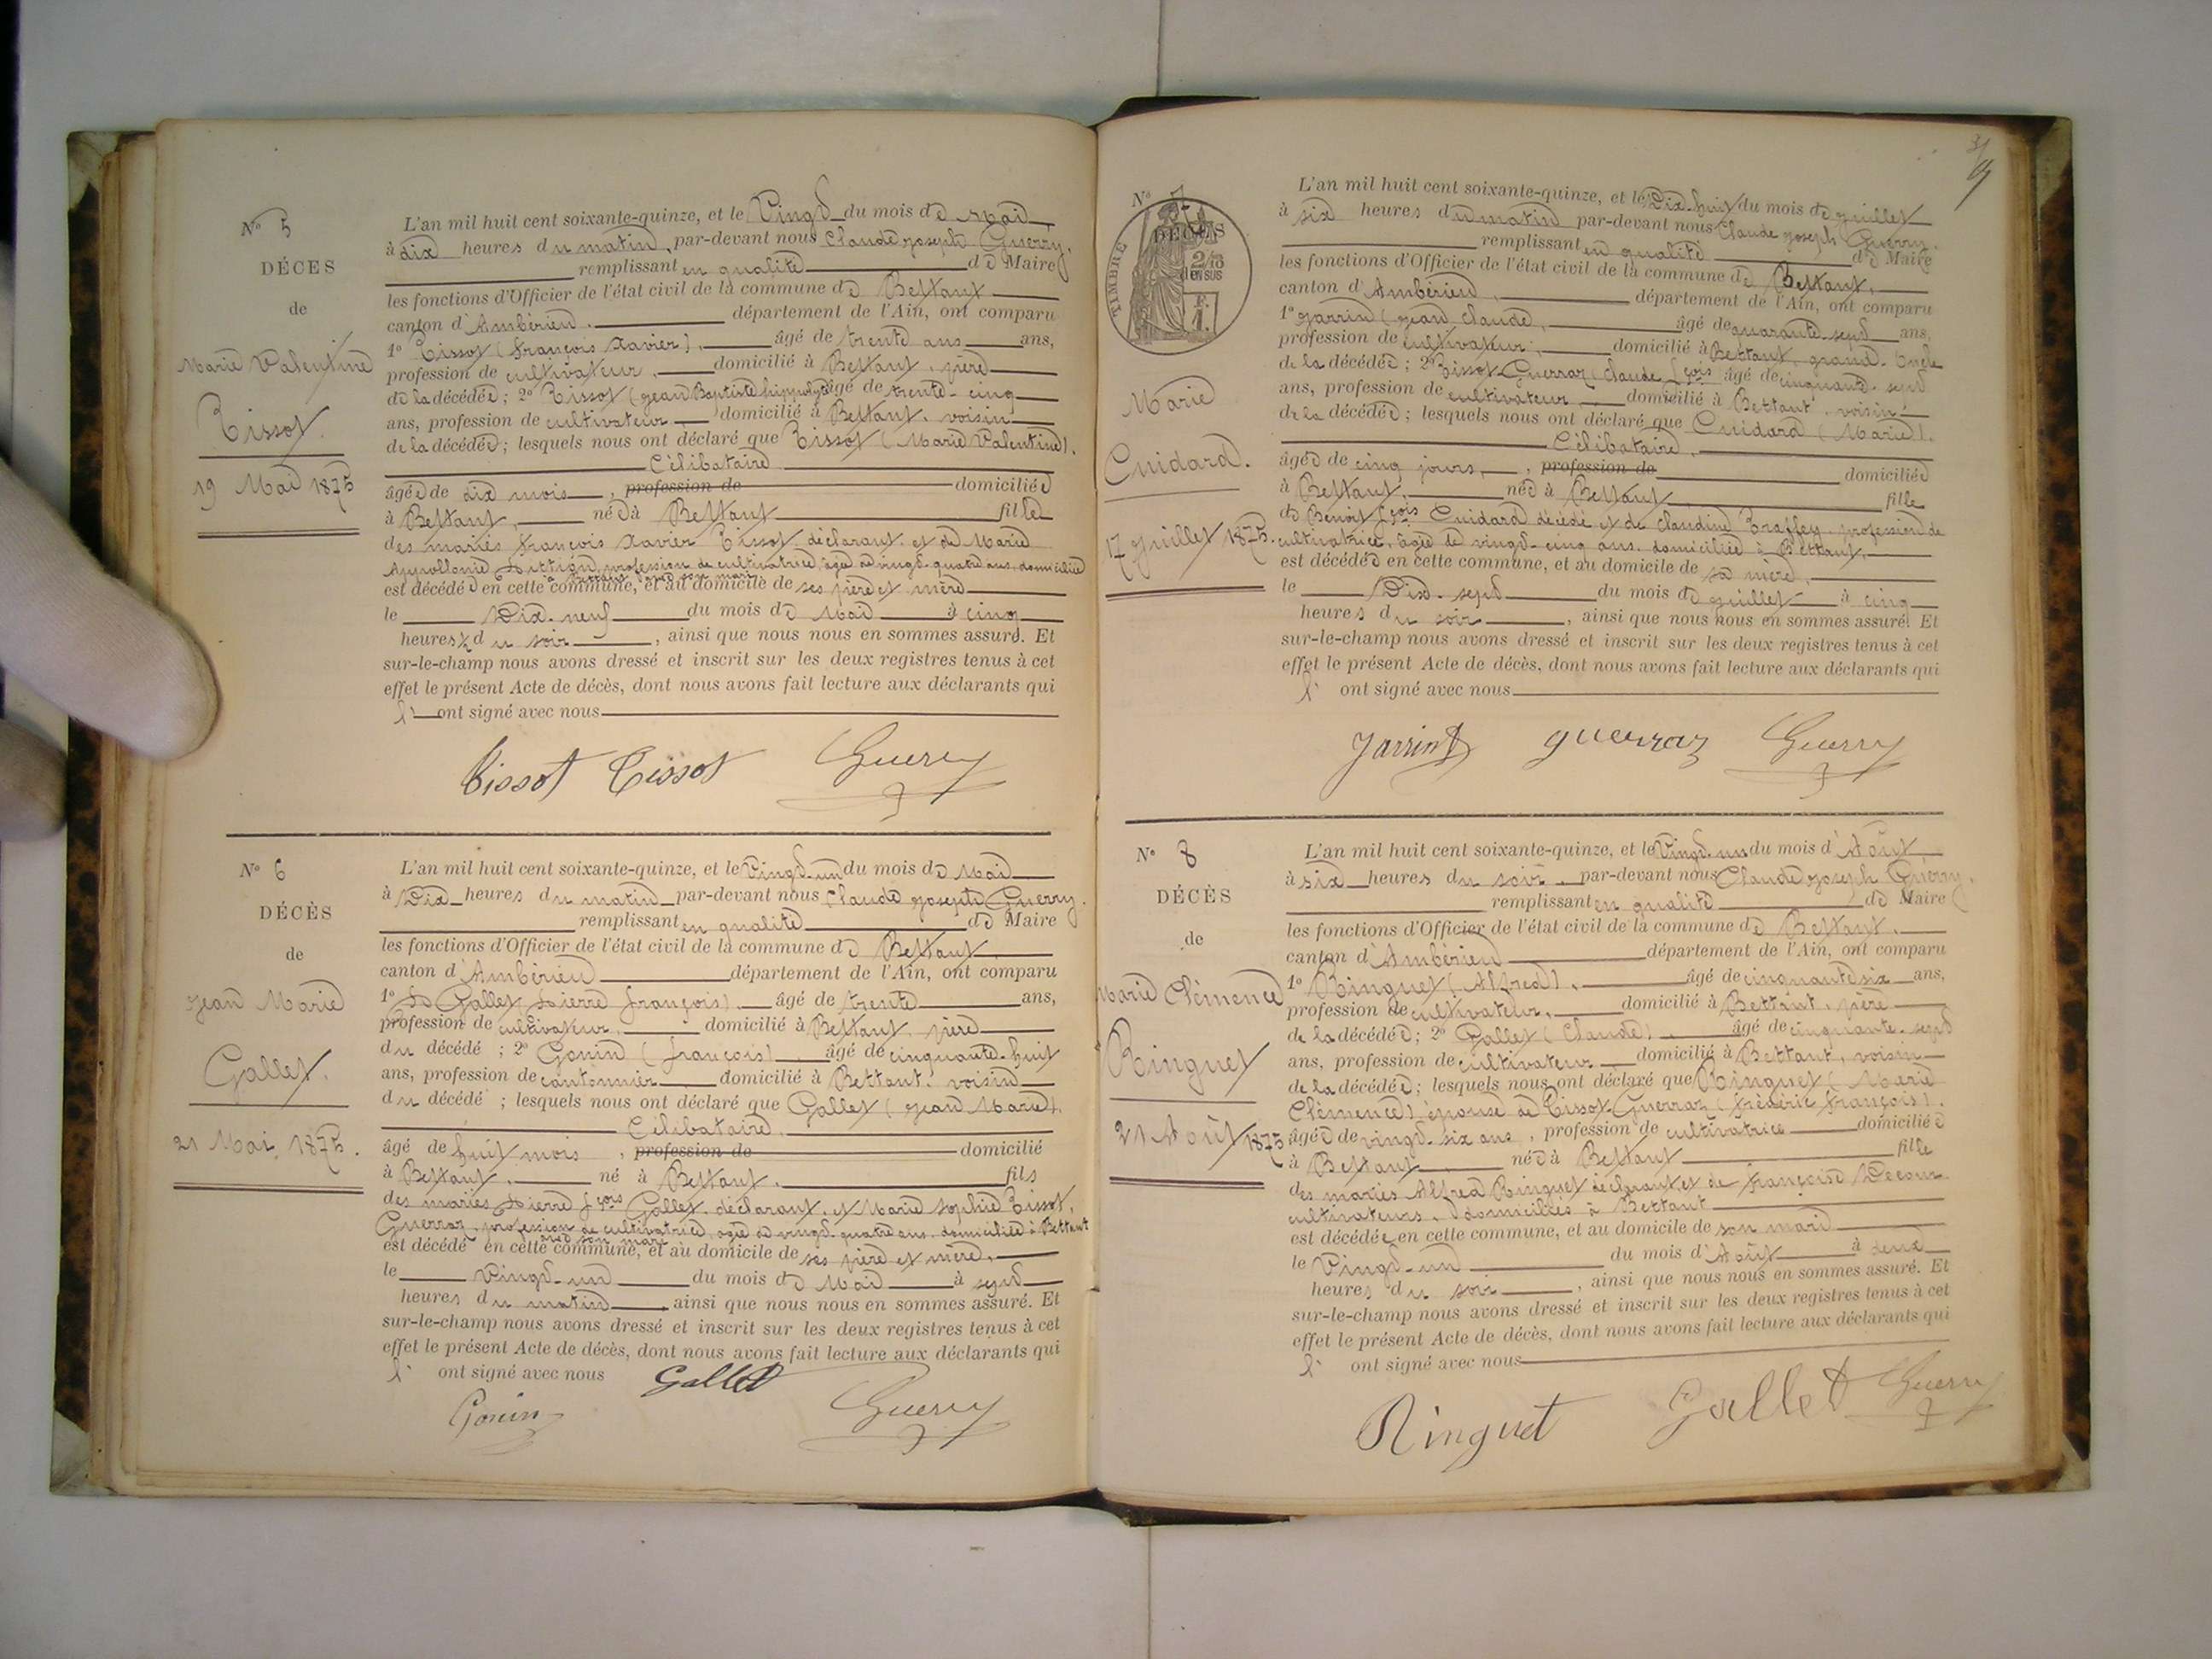 N° 5
DÉCES
de
Marie Valentine
Tissot.
19 Mai 1875
L'an mil huit cent soixante-quinze, et le Vingt du mois de Mai
à dix heures du matin, par-devant nous Claude joseph Guerry.
remplissant en qualité de Maire
les fonctions d'Officier de l'état civil de la commune de Bettant
canton d'Ambérieu. département de l'Ain, ont comparu
1° Tissot (françois Xavier), âgé de trente ans ans,
profession de cultivateur, domicilié à Bettant, père
de la décédée; 2° Tissot (jean Baptiste hippolyte) âgé de trente-cinq
ans, profession de cultivateur domicilié à Bettant, voisin
de la décédée; lesquels nous ont déclaré que Tissot (Marie Valentine).
Célibataire
âgée de dix mois, profession de domiciliée
à Bettant, née à Bettant fille
des mariés françois Xavier Tissot déclarant et de Marie
Appollonie profession de cultivatrice, âgée de vingt-quatre ans, domiciliée
à Bettant avec son mari
est décédée en cette commune, et au domicile de ses père et mère
le Dix-neuf du mois de Mai à cinq
heures ½ du soir, ainsi que nous nous en sommes assuré. Et
sur-le-champ nous avons dressé et inscrit sur les deux registres tenus à cet
effet le présent Acte de décès, dont nous avons fait lecture aux déclarants qui
l' ont signé avec nous
Tissot Tissot Guerry
N° 6
DÉCÈS
de
jean Marie
Gallet.
21 Mai, 1875.
L'an mil huit cent soixante-quinze, et le Vingt-un du mois de Mai
à Dix heures du matin par-devant nous Claude joseph Guerry.
remplissant en qualité de Maire
les fonctions d'Officier de l'état civil de la commune de Bettant
canton d'Ambérieu département de l'Ain, ont comparu
1° Gallet (pierre françois), âgé de trente ans,
profession de cultivateur, domicilié à Bettant, père
du décédé ; 2° Gonin (françois) âgé de cinquante-huit
ans, profession de cantonnier domicilié à Bettant. voisin
du décédé ; lesquels nous ont déclaré que Gallet (jean Marie).
Célibataire.
âgé de huit mois, profession de domicilié
à Bettant, né à Bettant. fils
des mariés pierre fçois Gallet. déclarant. et Marie Sophie Tissot,
Guerraz, profession de cultivatrice, âgée de vingt-quatre ans, domiciliée à Bettant
avec son mari
est décédé en cette commune, et au domicile de ses père et mère,
le Vingt-un du mois de Mai à sept
heures du matin, ainsi que nous nous en sommes assuré. Et
sur-le-champ nous avons dressé et inscrit sur les deux registres tenus à cet
effet le présent Acte de décès, dont nous avons fait lecture aux déclarants qui
l' ont signé avec nous Gallet
Gonin Guerry
N° 7
DÉCÈS
TIMBRE
2/10
en sus
Marie
Cuidard.
17 juillet 1875.
L'an mil huit cent soixante-quinze, et le Dix-huit du mois de juillet
à six heures du matin par-devant nous Claude joseph Guerry.
remplissant en qualité de Maire
les fonctions d'Officier de l'état civil de la commune de Bettant,
canton d'Ambérieu, département de l'Ain, ont comparu
1° jarrin (jean claude, âgé de quarante-sept ans,
profession de cultivateur, domicilié à Bettant, grand-Oncle
de la décédée; 2° Tissot-Guerraz (Claude fçois âgé de cinquante-sept
ans, profession de cultivateur domicilié à Bettant. voisin
de la décédée; lesquels nous ont déclaré que Cuidard (Marie).
Célibataire,
âgée de cinq jours, profession de domiciliée
à Bettant, née à Bettant fille
de Benoit fçois Cuidard décédé et de Claudine Traffey. profession de
cultivatrice, âgée de vingt-cinq ans. domiciliée à Bettant,
est décédée en cette commune, et au domicile de sa mère,
le Dix-sept du mois de juillet à cinq
heures du soir, ainsi que nous nous en sommes assuré. Et
sur-le-champ nous avons dressé et inscrit sur les deux registres tenus à cet
effet le présent Acte de décès, dont nous avons fait lecture aux déclarants qui
l' ont signé avec nous
jarrin guerraz Guerry
N° 8
DÉCÈS
de
Marie Clémence
Ringuet
21 Août 1875
L'an mil huit cent soixante-quinze, et le Vingt-un du mois d'Août
à six heures du soir, par-devant nous Claude joseph Guerry.
remplissant en qualité de Maire
les fonctions d'Officier de l'état civil de la commune de Bettant.
canton d'Ambérieu département de l'Ain, ont comparu
1° Ringuet (Alfred), âgé de cinquante six ans,
profession de cultivateur, domicilié à Bettant, père
de la décédée; 2° Gallet (Claude) âgé de cinquante-sept
ans, profession de cultivateur domicilié à Bettant, voisin
de la décédée; lesquels nous ont déclaré que Ringuet (Marie
Clémence) épouse de Tissot-Guerraz (frédéric françois).
âgée de vingt-six ans, profession de cultivatrice domiciliée
à Bettant née à Bettant fille
des mariés Alfred Ringuet déclarant, et de françoise Decour
cultivateurs, domiciliés à Bettant
est décédée en cette commune, et au domicile de son mari
le Vingt-un du mois d'Août à deux
heures du soir, ainsi que nous nous en sommes assuré. Et
sur-le-champ nous avons dressé et inscrit sur les deux registres tenus à cet
effet le présent Acte de décès, dont nous avons fait lecture aux déclarants qui
l' ont signé avec nous
Ringuet Gallet Guerry